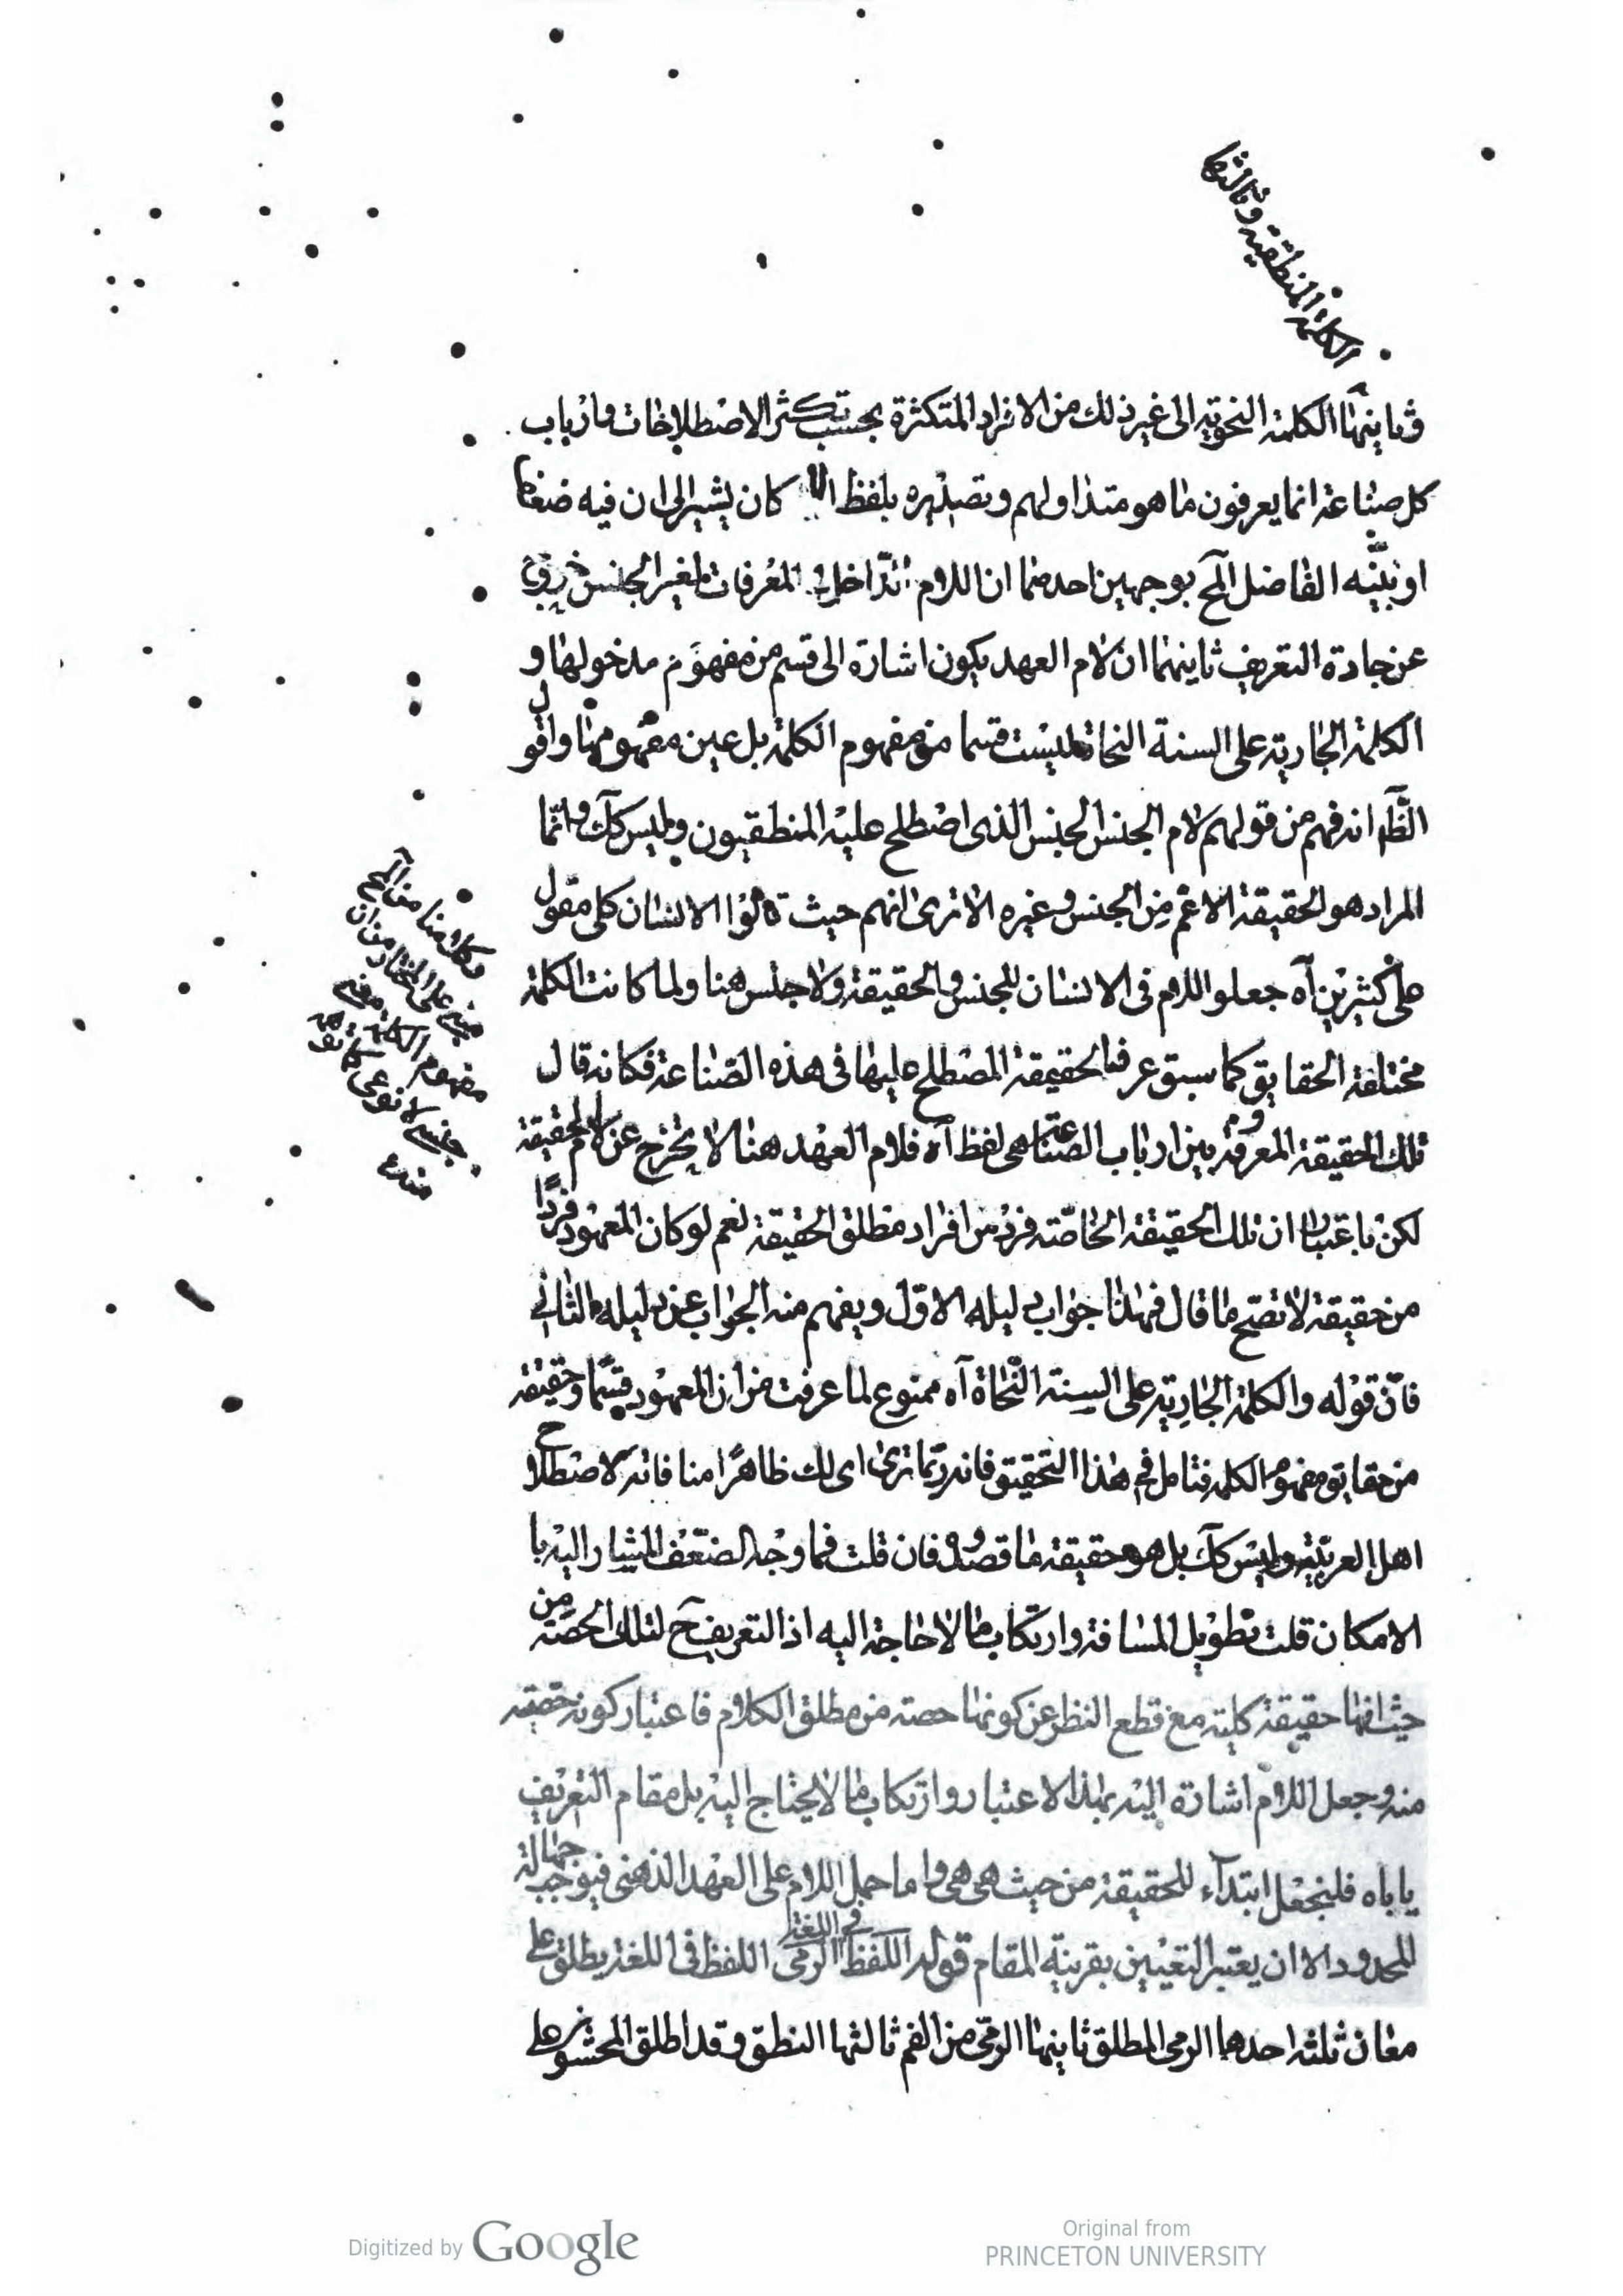 الكلمة المنطقية وثالثها
وثانيتها الكلمة النحوية الى غير ذلك من الافراد المتكثرة بحسب تكثر الاصطلاحات وارباب
كل صناعة انما يعرفون ما هو متداولهم وتصديره بلفظ كان يشير الى ان فيه ضعفا
او بينه الفاضل المح بوجهين احدهما ان اللام المعرفات لغير الجنس خروج
عن جادة التعريف ثانيهما ان لام العهد يكون اشارة الى قسم من مفهوم مدخولها و
الكلمة الجارية على السنة النحاة ليست قسما من مفهوم الكلمة بل عين مفهومها واقول
الظ انه فهم من قولهم لام الجنس الجنس الذى اصطلح عليه المنطقيون وليس كك وانما
المراد هو الحقيقة الاعم من الجنس وغيره الا ترى انهم حيث قالوا الانسان كلى مقول
على كثيرين آه جعلوا اللام فى الانسان للجنس والحقيقة ولا جنس هنا ولما كانت الكلمة
مختلفة الحقايق كما سبق عرف الحقيقة المصطلح عليها فى هذه الصناعة فكانه قال
تلك الحقيقة المعروفة بين ارباب الصناعة هى لفظ آه فلام العهد هنا لا يخرج عن لام الحقيقة
لكن باعتبار ان تلك الحقيقة الخاصة فرد من افراد مطلق الحقيقة نعم لو كان المعهود فردًا
من حقيقة لا تضح ما قال فهذا جواب دليله الاول ويفهم منه الجواب عن دليله الثانى
فان قوله والكلمة الجارية على السنة النحاة آه ممنوع لما عرفت من ان المعهود قسمًا وحقيقة
من حقايق مفهوم الكلمة فتامل فى هذا التحقيق فانه ربما ترى اى لك ظاهرًا منا فانه لاصطلاح
اهل العربية وليس كك بل هو حقيقة ما قصدوه فان قلت فما وجه الضعف المشار اليه با
الامكان قلت تطويل المسافة وارتكاب ما لا حاجة اليه اذ التعريف ح لتلك الحصة من
حيث انها حقيقة كلية مع قطع النظر عن كونها حصة من مطلق الكلام فاعتبار كونه حصة
منه وجعل اللام اشارة اليه بهذا الاعتبار وارتكاب ما لا يحتاج اليه بل مقام التعريف
ياباه فلنجعل ابتداء للحقيقة من حيث هى هى واما حمل اللام على العهد الذهنى فيوجب جهالة
المحدود الا ان يعتبر التعيين بقرينة المقام قوله اللفظ فى اللغة الرمى اللفظ فى اللغة يطلق على
معان ثلثة احدها الرمى المطلق ثانيها الرمى من الفم ثالثها النطق وقد اطلق المحشون على